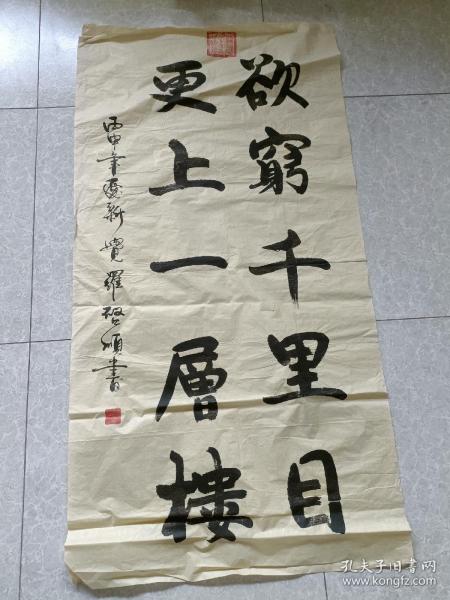 欲窮千里目
更上一層樓
丙申年愛新覺羅啓順書
孔夫子旧书网
www.kongfz.com